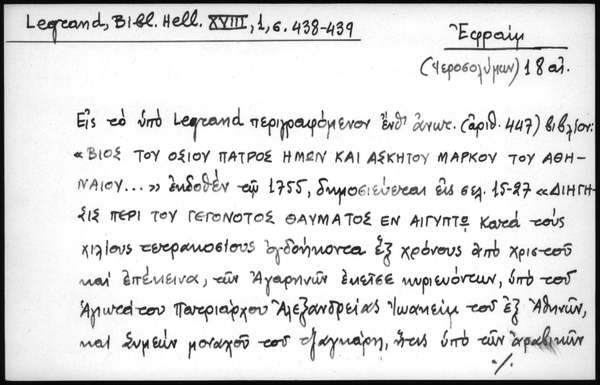 Legrand, Bibl. Hell. XVIII, 1, σ. 438-439
Ἐφραὶμ
(Ἱεροσολύμων) 18 αἰ.
Εἰς τὸ ὑπὸ Legrand περιγραφόμενον ἐνθ' ἀνωτ. (ἀριθ. 447) βιβλίον:
«ΒΙΟΣ ΤΟΥ ΟΣΙΟΥ ΠΑΤΡΟΣ ΗΜΩΝ ΚΑΙ ΑΣΚΗΤΟΥ ΜΑΡΚΟΥ ΤΟΥ ΑΘΗ-
ΝΑΙΟΥ...» ἐκδοθὲν τῷ 1755, δημοσιεύεται εἰς σελ. 15-27 «ΔΙΗΓΗ-
ΣΙΣ ΠΕΡΙ ΤΟΥ ΓΕΓΟΝΟΤΟΣ ΘΑΥΜΑΤΟΣ ΕΝ ΑΙΓΥΠΤῼ κατὰ τοὺς
χιλίους τετρακοσίους ὀγδοήκοντα ἓξ χρόνους ἀπὸ χριστοῦ
καὶ ἐπέκεινα, τῶν Ἀγαρηνῶν ἐκεῖσε κυριευόντων, ὑπὸ τοῦ
ἁγιωτάτου Πατριάρχου Ἀλεξανδρείας Ἰωακεὶμ τοῦ ἐξ Ἀθηνῶν,
καὶ Συμεὼν μοναχοῦ τοῦ τζαγκάρη, ἥτις ὑπὸ τῶν ἀραβικῶν
./.